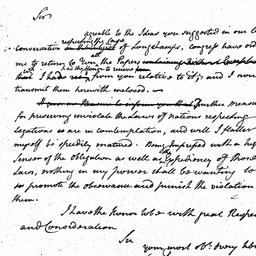 Sir
agreable to the Ideas you suggested in our la
respecting the Case
conversation of Longchamps, Congress have ord
all
me to return to you the Papers
I had from you relative to it, and I now
transmit them herewith inclosed. —
further measu
for preserving inviolate the Laws of nations respecting
legations are in contemplation, and will I flatter
myself be speedily matured. Being Impressed with a hig
Sense of the Obligation as well as Expediency of those
Laws, nothing in my power shall be wanting to
promote the observance and punish the violation
them.
I have the honor to be with great Respe
and Consideration
Sir
your most obt. very hb